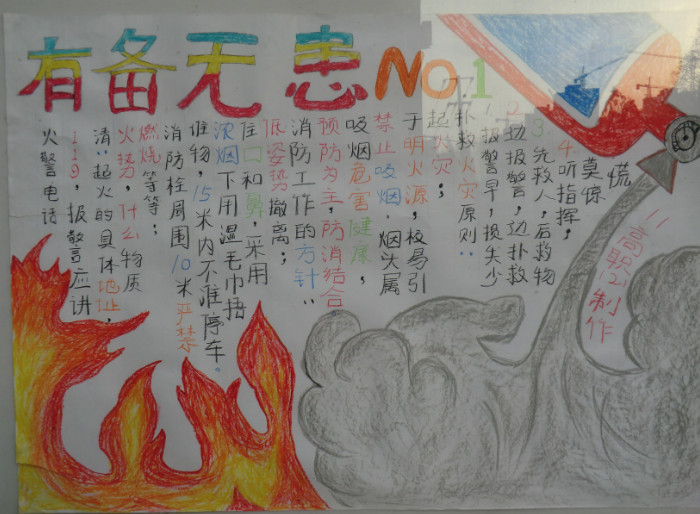 有备无患No.1
火警电话
119,报警应讲
清:起火的具体地址,
火势,什么物质
燃烧等等;
消防栓周围10米严禁
堆物,15米内不准停车。
浓烟下用湿毛巾捂
住口和鼻,采用
低姿势撤离;
消防工作的方针:
预防为主,防消结合
吸烟危害健康,
禁止吸烟.烟头属
于明火源,极易引
起火灾;
扑救火灾原则:
1.报警早,损失少
2.边报警,边扑救
3.先救人,后救物
4听指挥,
莫惊
慌
制作